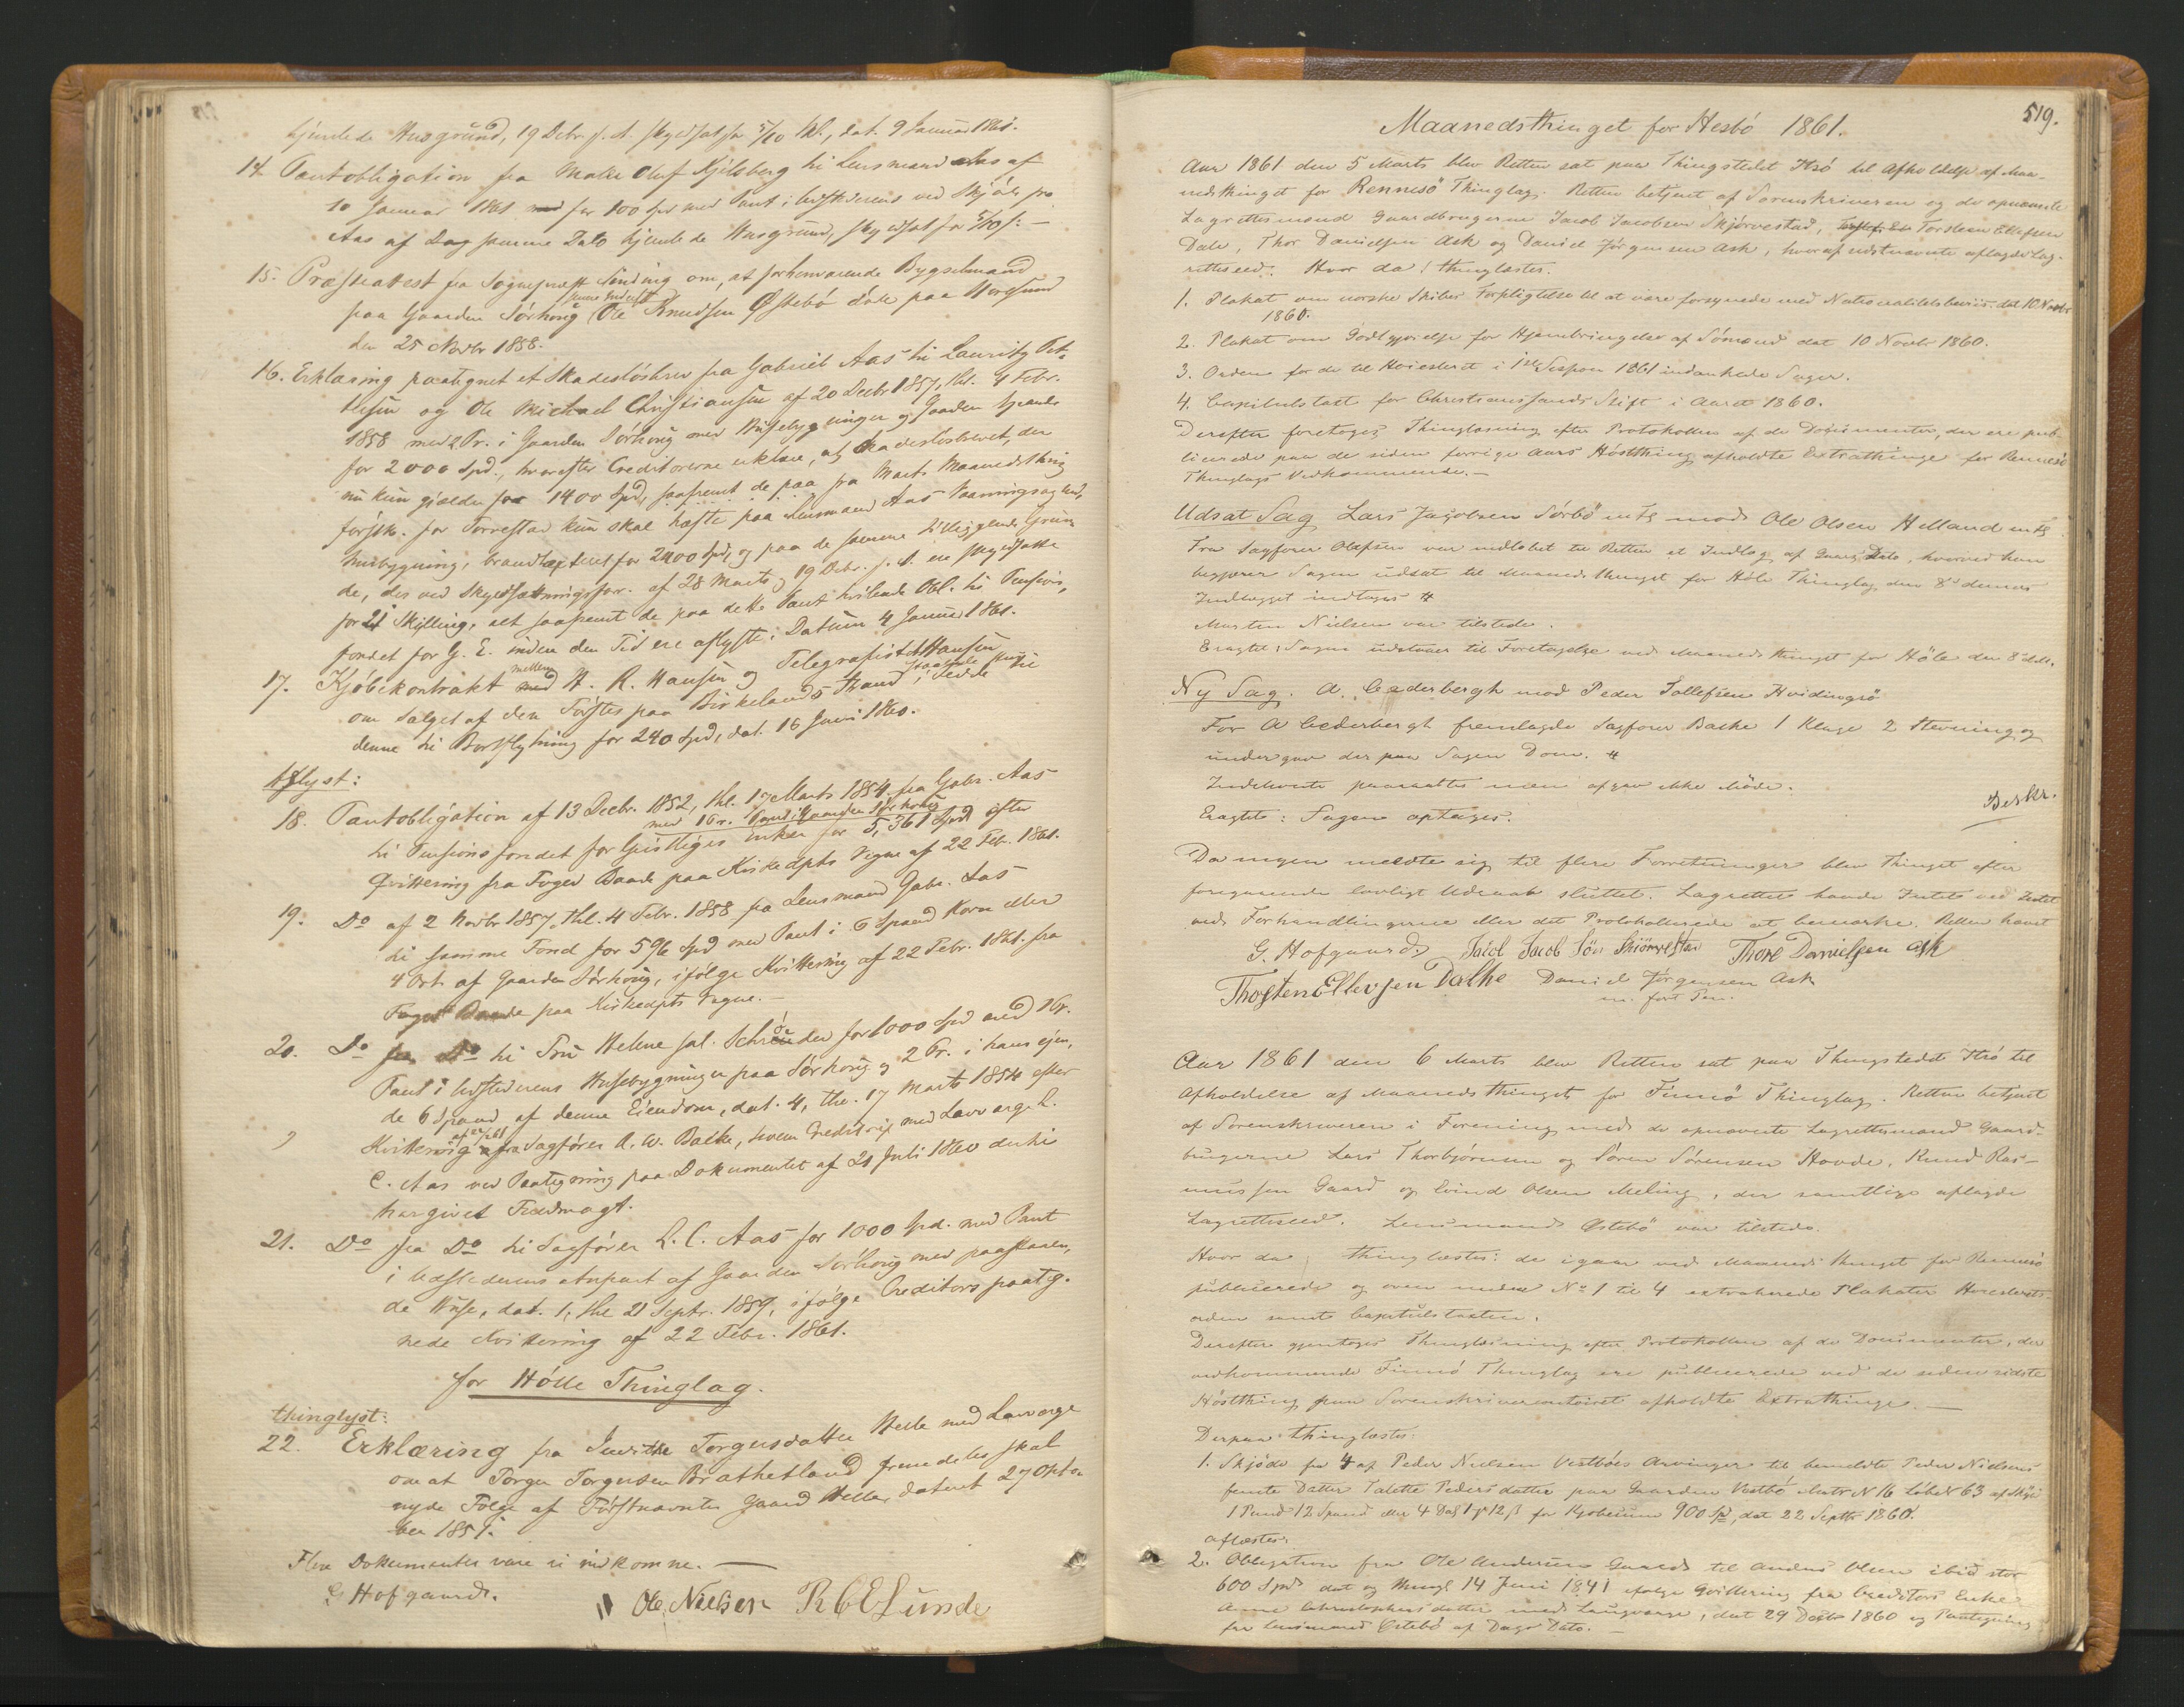 hjemlede Husgrund, 19 Debr. f. A. skyldsat for 5/10 sk., dat. 9 Januar 1861.
14. Pantobligation fra Maler Oluf Kjelsberg til Lensmand Aas af
10 Januar 1861 for 100 Spd med Pant i Udstederens ved Skjøde fra
Aas af samme Dato hjemlede Husgrund, skyldsat for 5/10 s:
15. Præsteattest fra Sogneprest Sinding om, at forhenværende Bygselmand
paa Gaarden Sørhoug Ole Knudsen Østebö döde paa
den 25 Novbr 1858.
16. Erklæring paategnet et Skadeslösbrev fra Gabriel Aas til Lauritz Pet-
tersen og Ole Michael Christiansen af 20 Decbr 1857, thl. 4 Febr.
1858 med 2 Pr. i Gaarden Sörhoug med Husebygninger og Gaarden
for 2000 Spd., hvorefter Creditorerne erklære, at Skadeslösbrevet, der
nu kun gjælder for 1400 Spd, saafremt de paa fra Marts Maanedsthing
förstk. for Torvestad kun skal hæfte paa Lensmand Aas Vaaningsog
husbygning, brandtaxeret for 2400 Spd, og paa de samme tilliggende Grun-
de, der ved Skyldsætningsforr. af 28 Marts og 19 Debr. f. A. ere skyldsatte
for 21 Skilling, alt saafremt de paa dette Pant hvilende Obl. til Pensions-
fondet for G. E. inden den Tid ere aflyste. Datum 4 Januar 1861.
17. Kjöbekontrakt mellem H. R. Hansen og Telegrafist Hansen
om Salget af den Förstes paa Birkelands Strand i staaende Huus til
denne til Bortflytning for 240 Spd, dat. 16 Juni 1860.
Aflyst:
18. Pantobligation af 13 Decbr. 1852, thl. 17 Marts 1854 fra Gabr. Aas
med 1 Pr. Pant i Gaarden Sörhoug
til Pensionsfondet for Geistliges Enker for 5,361 Spd efter
Qvittering fra Foged Baade paa Kirkedepts Vegne af 22 Feb. 1861.
19. Do af 2 Novbr 1857, thl. 4 Febr. 1858 fra Lensmand Gabr. Aas
til samme Fond for 596 Spd med Pant i 6 Spand Korn eller
4 Ort. af Gaarden Sörhoug, ifölge Kvittering af 22 Febr. 1861 fra
Foged Baade paa Kirkedepts Vegne.
20. Do fra Do til Fru Helene sal. Schröder for 1000 Spd med 1 Pr.
Pant i Udstederens Husebygninger paa Sörhoug og 2 Pr. i hans ejen-
de 6 Spand af denne Eiendom, dat. 4, thl. 17 Marts 1854 efter
Kvittering af 22/2 61 fra Sagförer A. W. Balke, hvem Creditrix med Lavværge L.
C. Aas ved Paategning paa Dokumentet af 21 Juli 1860 dertil
har givet Fuldmagt.
21. Do fra Do til Sagförer L. C. Aas for 1000 Spd. med Pant
i Udstederens Anpart af Gaarden Sörhoug med paastaaen-
de Huse, dat. 1, thl 21 Septr. 1859, ifölge Creditors paateg-
nede Kvittering af 22 Febr. 1861.
for Hölle Thinglag.
thinglyst:
22. Erklæring fra Torgersdatter Helle med Lavværge
om at Torger Torgersen Bratthetland fremdeles skal
nyde Fölge af Förstnævntes Gaard Helle, dateret 27 Octo-
ber 1857.
Flere Dokumenter vare ei indkomne.
G Hofgaard. Ole Nielsen R C E Lunde
519.
Maanedsthinget for Hesbö 1861.
Aar 1861 den 5 Marts blev Retten sat paa Thingstedet Hsö til Afholdelse af Maa-
nedsthinget for Rennesö Thinglag. Retten betjent af Sorenskriveren og de opnævnte
Lagrettesmænd Gaardbrugerne Jacob Jacobsen Skjörvestad, Torsteen Ellefsen
Dale, Thor Danielsen Ask og Daniel Jörgensen Ask, hvoraf sidstnævnte aflagde Lag-
retteseed. Hvor da: thinglæstes.
1. Plakat om norske Skibes Forpligtelse til at være forsynede med Nationalitetsbeviis dat 10 Novbr
1860.
2. Plakat om Godtgjörelse for Hjembringelse af Sömænd dat 10 Novbr 1860.
3. Ordenen for de til Höiesteret i 1ste Session 1861 indankede Sager.
4. Capitulstaxt for Christianssands Stift i Aaret 1860.
Derefter foretoges Thinglæsning efter Protokollen af de Documenter, der ere pub-
licerede paa de siden forrige Aars Höstthing afholdte Extrathinge for Rennesö
Thinglags Vedkommende.
Udsat Sag Lars Jacobsen Sörbö mod Ole Olsen Helland
Fra Sagförer Olafsen var indlöbet til Retten et Indlæg af Gaars Dato, hvorved han
begjærer Sagen udsat til Maanedsthinget for Höle Thinglag den 8de dennes
Indlægget indtages #
Morten Nielsen var tilstede.
Eragtet: Sagen udstaaer til Foretagelse ved Maanedsthinget for Höle den 8de d.M.
Ny Sag. A. Cederbergh mod Peder Tollefsen Hvidingsö
For A Cederbergh fremlagde Sagförer Balke 1 Klage 2 Stevning og
undergav derpaa Sagen Dom. #
Indstevnte paaraabtes men afgav ikke Möde.
Eragtet: Sagen optages.
Beskr.
Da ingen meldte sig til flere Forretninger blev Thinget efter
foregaaende lovligt Udraab sluttet. Lagrettet havde Intet ved Indhold
ved Forhandlingerne eller det Protokollerede at bemærke. Retten hævet
G. Hofgaard Jacob Jacob Sön Skiörvestad Thore Danielsen Ask
Thosten Ellevsen Dalhe Daniel Jörgensen Ask
m. fört Pen.
Aar 1861 den 6 Marts blev Retten sat paa Thingstedet Hsö til
Afholdelse af Maanedsthinget for Finnö Thinglag. Retten betjent
af Sorenskriveren i Forening med de opnævnte Lagrettesmænd Gaard-
brugerne Lars Thorbjörnsen og Sören Sörensen Hovde, Knud Ras-
mussen Gaard og Eivind Olsen Meling, der samtlige aflagde
Lagretteseed. Lensmand Östebö var tilstede.
Hvor da thinglæstes: de igaar ved Maanedsthinget for Rennesö
publicerede og ovenmeldte No 1 til 4 extraherede Plakater Höiesterets-
orden samt Capitulstaxten.
Derefter gjentoges Thinglæsning efter Protokollen af de Documenter, der
vedkommende Finnö Thinglag ere publicerede ved de siden sidste
Höstthing paa Sorenskrivercontoiret afholdte Extrathinge.
Derpaa thinglæstes:
1. Skjöde fra 4 af Peder Nielsen Vestböes Arvinger til bemeldte Peder Nielsens
femte Datter Talette Pedersdatter paa Gaarden Vestbö Matr N 16 Löbe N 63 af Skyld
1 Pund 12 Spand eller 4 Dal 1 ort 12 ß for Kjöbesum 900 Spd, dat 22 Septbr 1860.
aflæstes:
2. Obligation fra Ole Andersen Gaard til Anders Olsen ibid stor
600 Spd dat og thingl 14 Juni 1841 ifölge Qvittering fra Creditors Enke
Anne Christophersdatter med Laugværge, dat 29 Decbr 1860 og Paategning
fra Lensmand Östebö af Dags Dato.